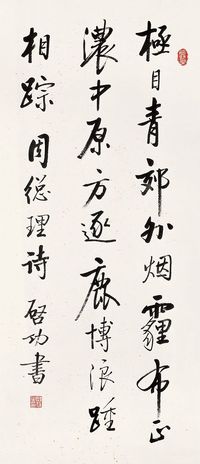 極目青郊外烟霾布正
濃中原方逐鹿博浪踵
相踪 周总理诗 启功書